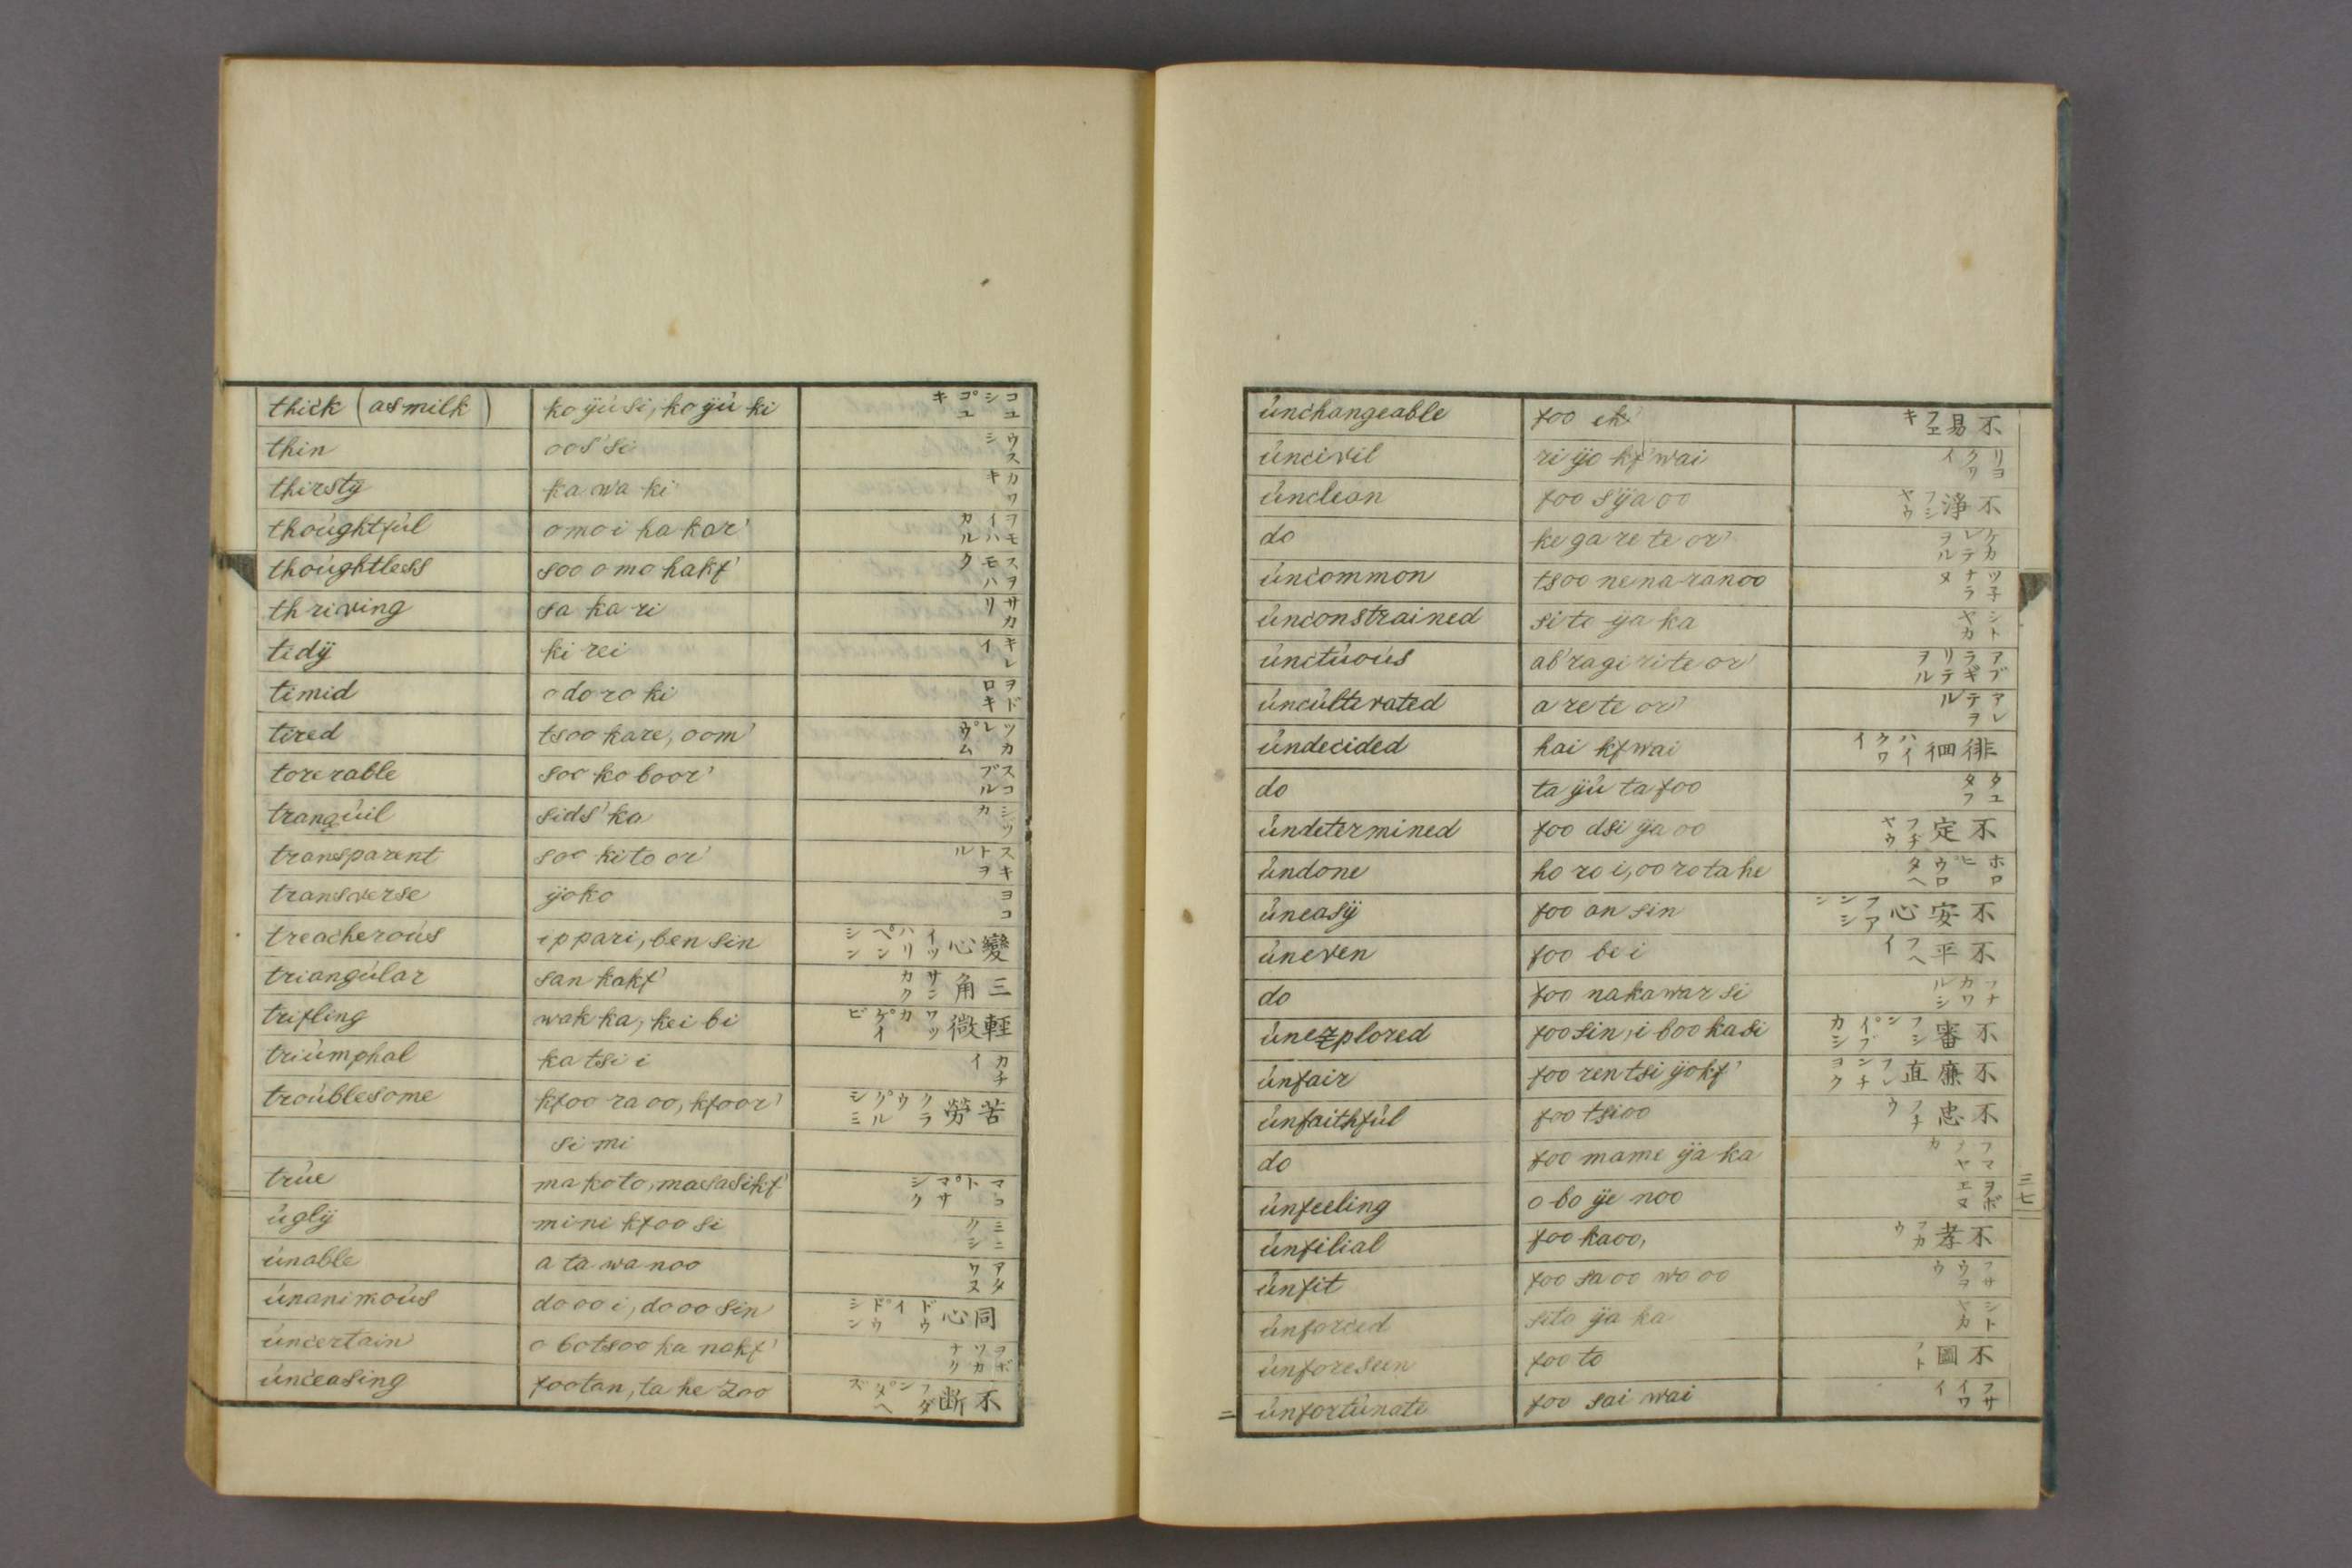 thick (as milk) ko ÿu si, ko ÿu ki コユシ゜コユキ
thin oos'si ウスシ
thirstÿ ka wa ki カワキ
thoughtful omo i ha kar' ヲモイハカル
thoughtless soo o mo hakf' スヲモハク
thriving sa ka ri サカリ
tidÿ ki rei キレイ
timid o do ro ki ヲドロキ
tired tsoo kare, oom' ツカレ゜ウム
torerable soo ko boor' スコブル
tranquil sids' ka シツカ
transparent soo ki to or' スキトヲル
transverse ÿoko ヨコ
treacherous ip pari, ben sin 變心 イツハリ゜ヘンシン
triangular san kakf' 三角 サンカク
trifling wak ka, kei bi 輕微 ワツカ゜ケイビ
triumphal ka tsi i カチイ
troublesome kfoo ra oo, kfoor' 苦勞 クラウ゜クルシミ
si mi
true ma ko to, masasikf' マコト゜マサシク
uglÿ mi ni kfoo si ミニクシ
unable a ta wa noo アタワヌ
unanimous do oo i, do oo sin 同心 ドウイ゜ドウシン
uncertain o botsoo ka nakf' ヲボツカナク
unceasing footan, ta he zoo 不断 フダン゜タヘズ
unchangeable foo ek' 不易 フエキ
uncivil ri ÿo kf'wai リヨクワイ
unclean foo s'ÿa oo 不淨 フシヤウ
do ke ga re te or' ケカレテヲル
uncommon tsoo ne na ra noo ツ子ナラヌ
unconstrained si to ÿa ka シトヤカ
unctuous ab'ra gi ri te or' アブラギリテヲル
uncultivated a re te or' アレテヲル
undecided hai kf wai 徘徊 ハイクワイ
do ta ÿu ta foo タユタフ
undetermined foo dsi ÿa oo 不定 フチヤウ
undone ho ro i, oo ro ta he ホロヒ゜ウロタヘ
uneasÿ foo an sin 不安心 フアンシン
uneven foo be i 不平 フヘイ
do foo nakawar si フナカワルシ
unexplored foo sin, i boo ka si 不審 フシン゜イブカシ
unfair foo ren tsi ÿokf' 不廉直 フレンチヨク
unfaithful foo tsi oo 不忠 フチウ
do foo mame ÿa ka フマメヤカ
unfeeling o bo ÿe noo ヲボエヌ
三七
unfilial foo ka oo, 不孝 フカウ
unfit foo sa oo wo oo フサウヲウ
unforced sito ÿa ka シトヤカ
unforeseen foo to 不圖 フト
unfortunate foo sai wai フサイワイ